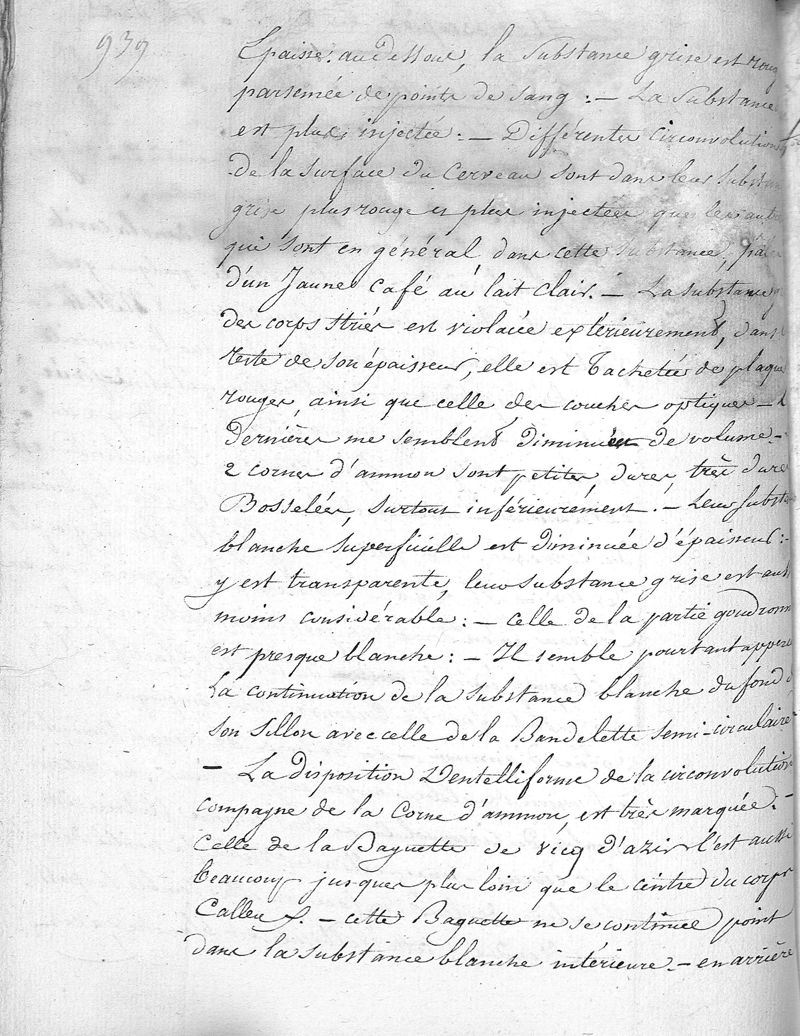 939
Epaisse: au dessous, la substance grise est roug
parsemée de points de sang : — La Substance
est plus injectée. — Différentes circonvolutions
de la surface du cerveau sont dans leur substan
grise plus rouge et plus injectées que les autr
qui sont en général, dans cette substance, pâl
d'un Jaune Café au lait clair. — La substance
des corps striés est violacée extérieurement, dans
reste de son épaisseur, elle est tachetée de plaque
rouges, ainsi que celle des couches optiques —
dernières me semblent diminuées de volume. —
2 cornes d'ammon sont petites, dures, très dures
Bosselées, surtout inférieurement. — Leur subst
blanche superficielle est diminuée d'épaisseur: —
y est transparente, leur substance grise est aus
moins considérable : — celle de la partie goudronn
est presque blanche : — Il semble pourtant apperc
La continuation de la substance blanche du fond d
son sillon avec celle de la Bandelette semi-circulaire
— La disposition Dentelliforme de la circonvolution
compagne de la Corne d'ammon, est très marquée. —
Celle de la Baguette de vicq d'azir l'est aussi
beaucoup jusques plus loin que le centre du corps
Calleux. — cette Baguette ne se continue point
dans la substance blanche intérieure. — en arrière